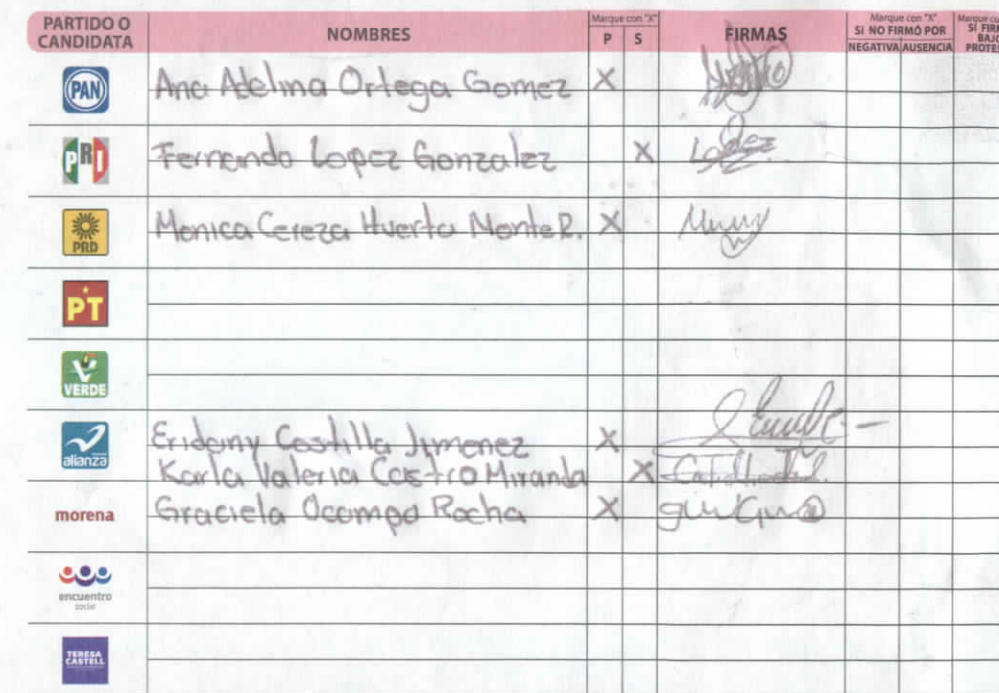 PARTIDO O CANDIDATA NOMBRES Marque con "X" P S FIRMAS Marque con "X" SI NO FIRMÓ POR NEGATIVA AUSENCIA
PAN Ana Adelina Ortega Gomez X
PRI Fernando Lopez Gonzalez X
PRD Monica Cereza Huerta Monte R. X
PT
VERDE
alianza Eridany Castilla Jimenez X
Karla Valeria Castro Miranda X
morena Graciela Ocampo Rocha X
encuentro social
TERESA CASTELL